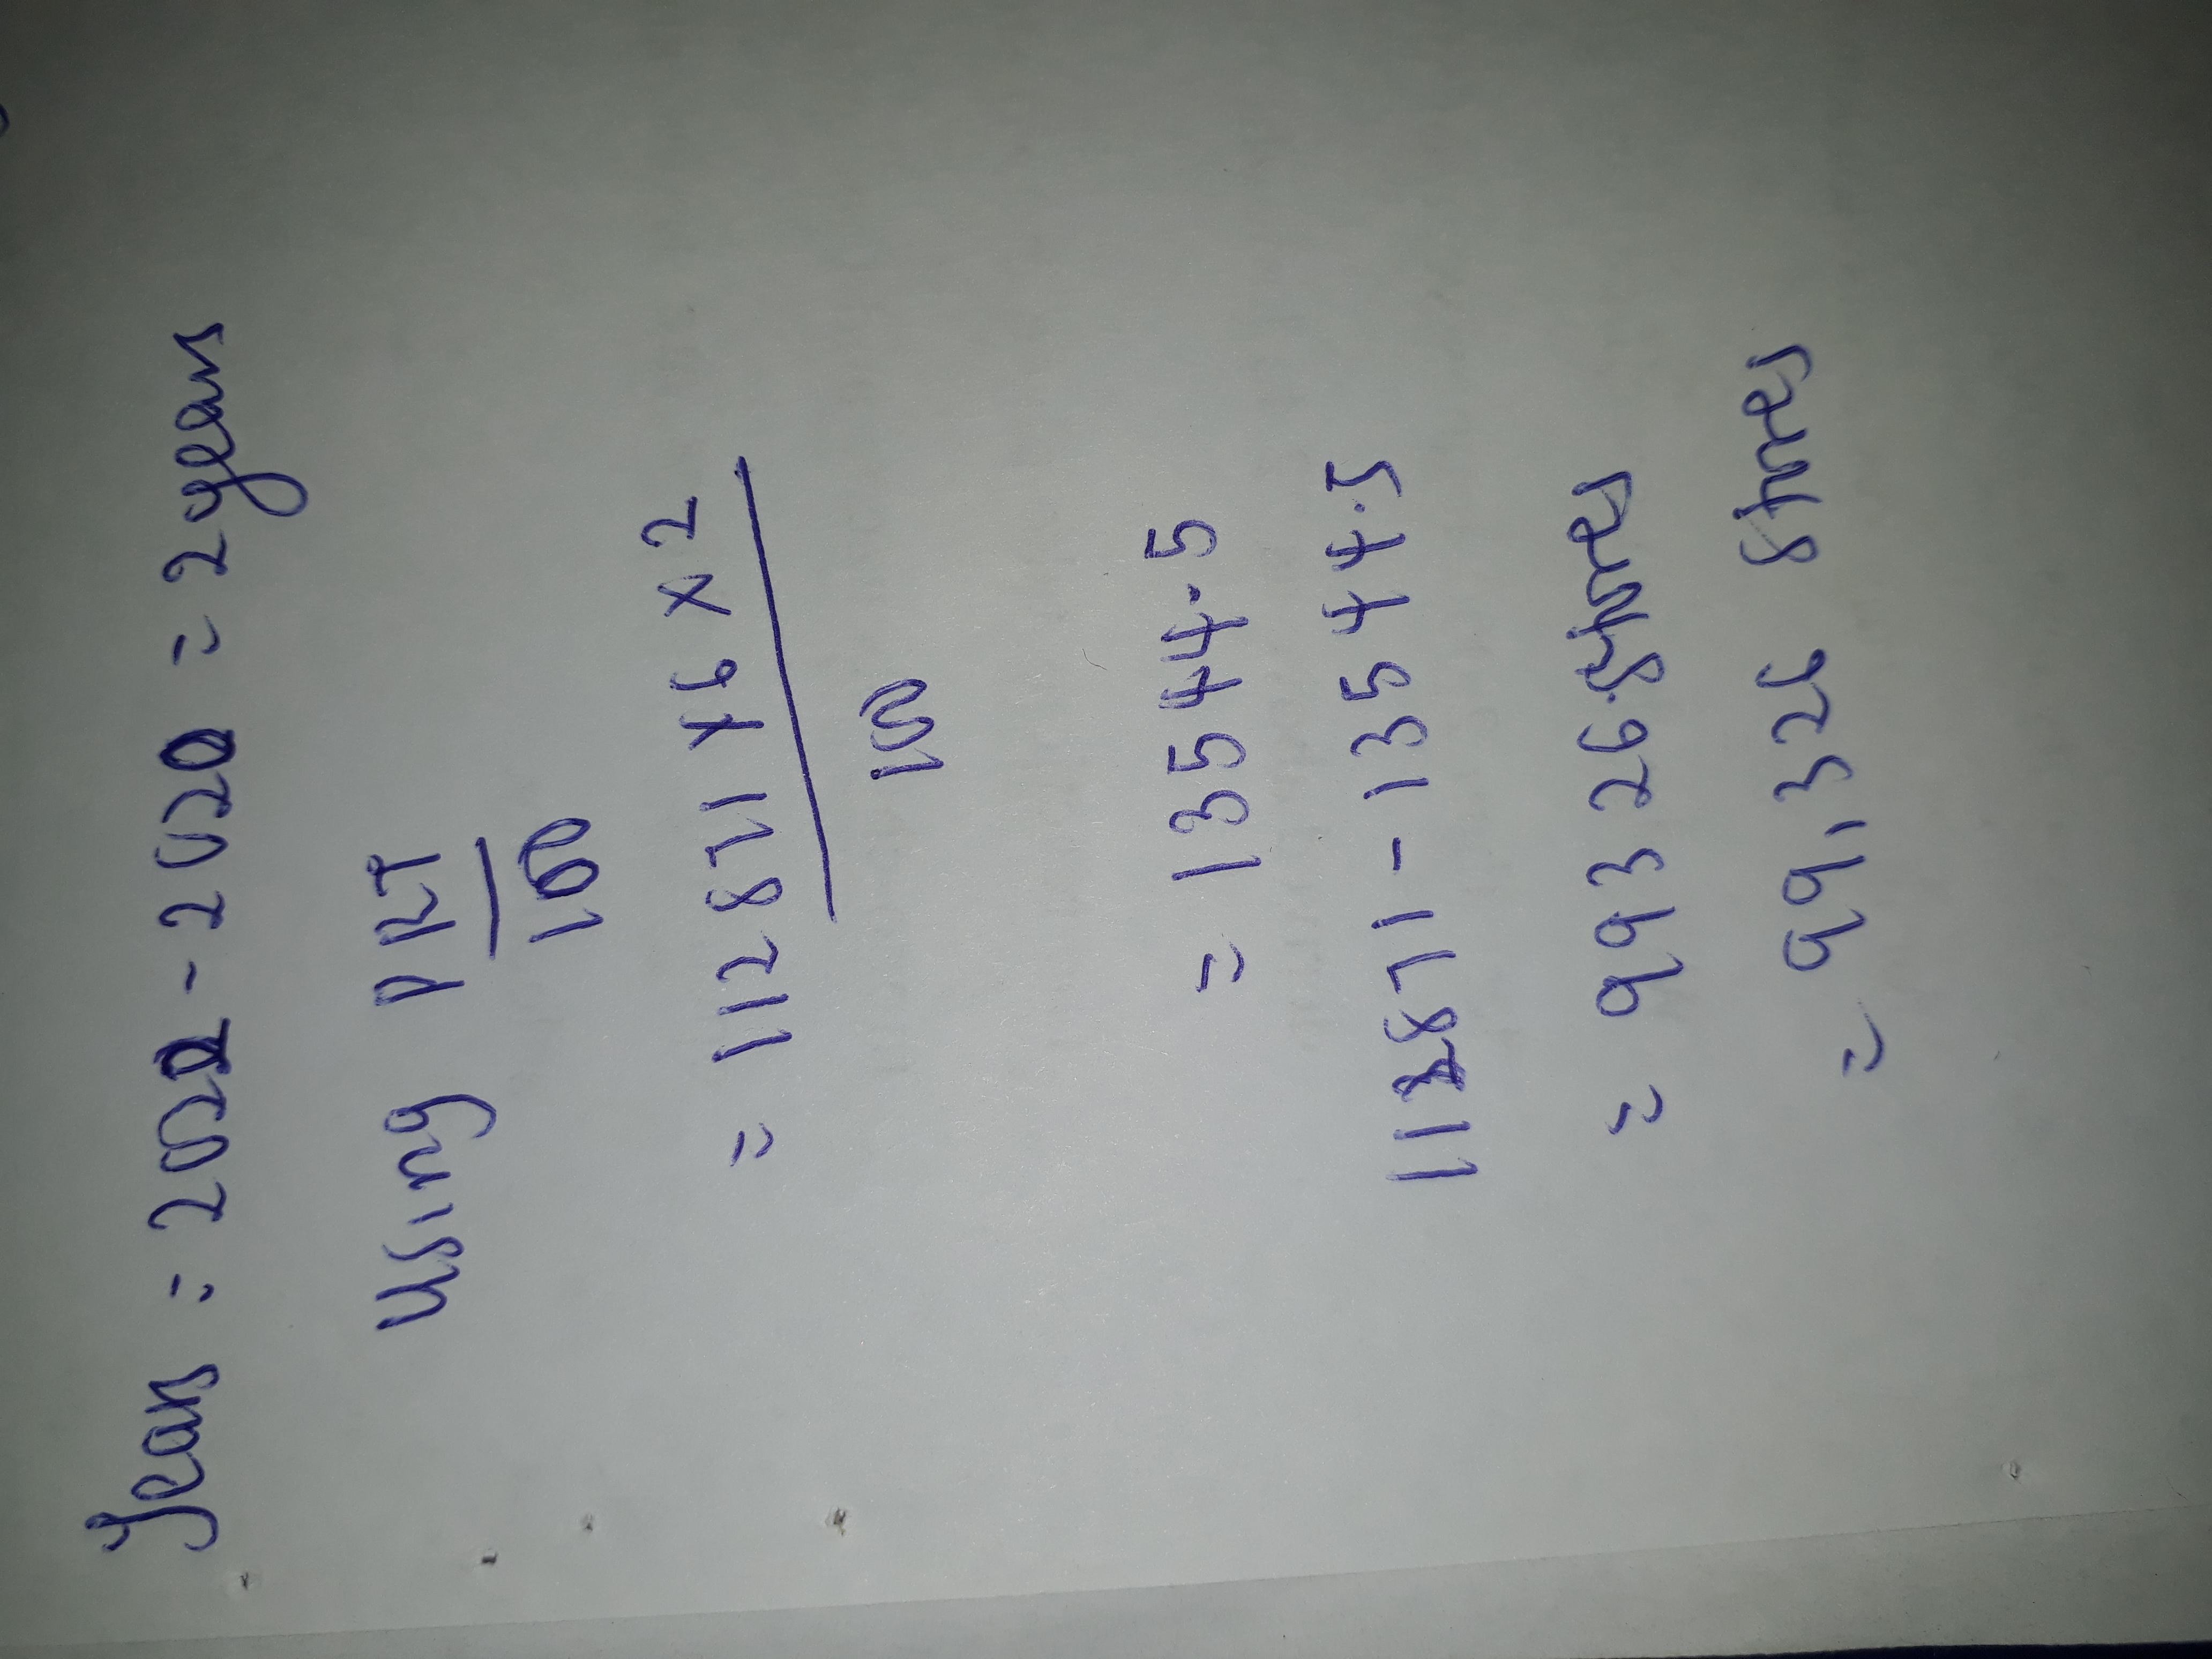 Years = 2022 - 2020 = 2years
Using PRT
100
= 112871 x 6 x 2
100
= 13544.5
112871 - 13544.5
= 99326.5
= 99,326